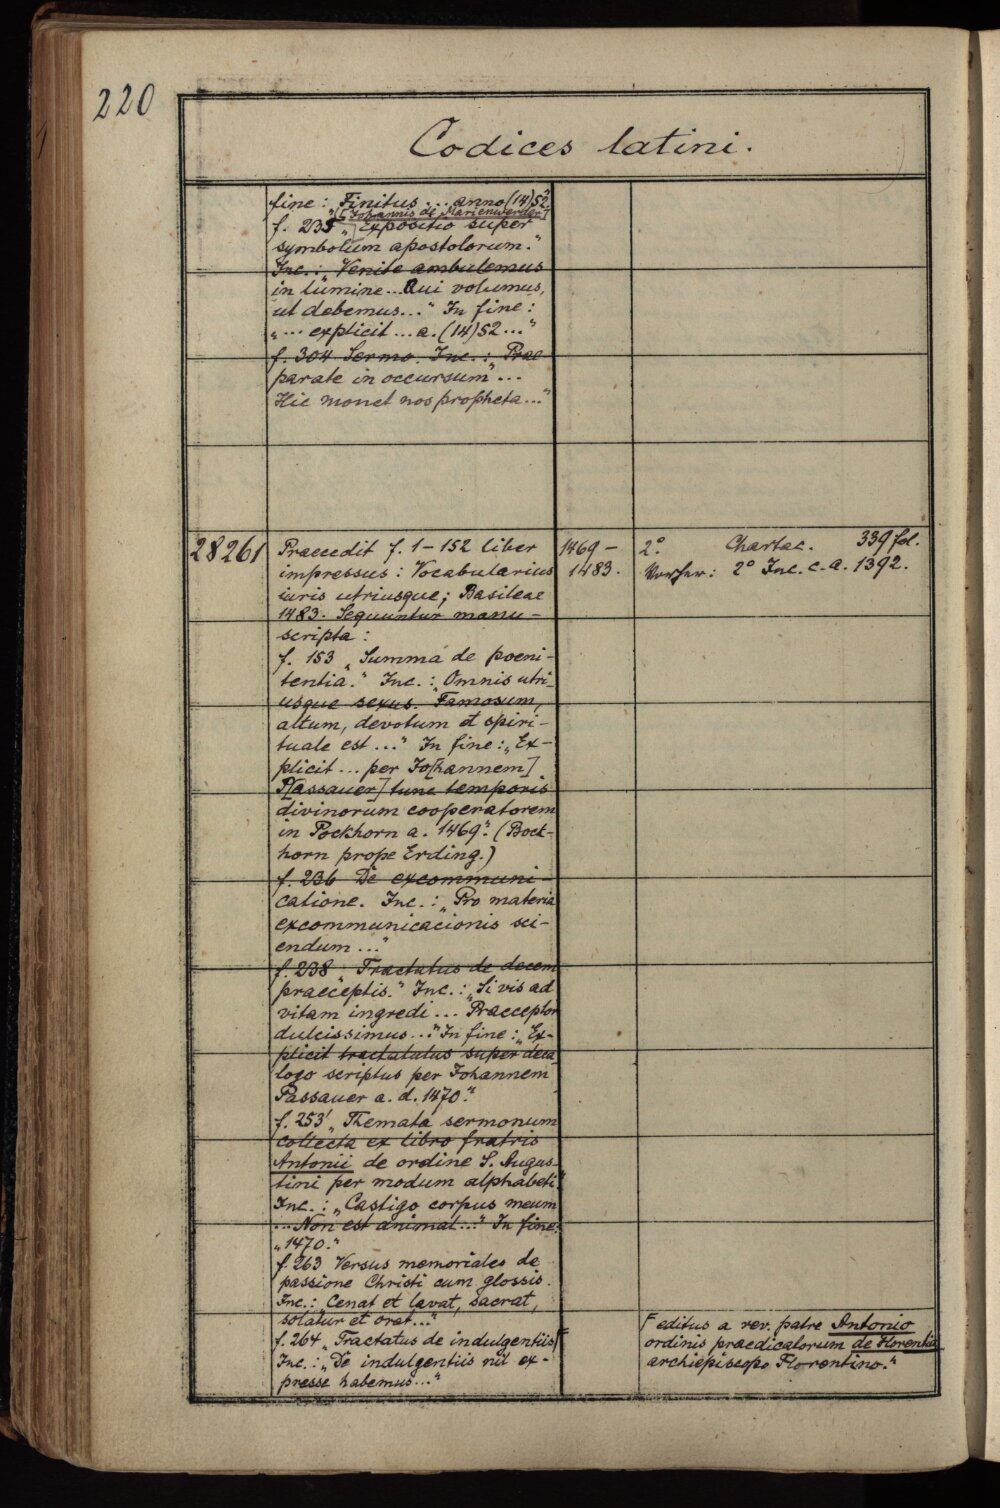 220
Codices latini.
fine: Finitus ... anno (14)52."
"[Johannis de Marienwerder]
f. 235 „Expositio super
symbolum apostolorum."
Inc.: „Venite ambulemus
in lumine... Qui volumus,
ut debemus..." In fine:
„... explicit ... a. (14)52..."
f. 304 Sermo. Inc.: „Prae
parate in occursum"...
Hic monet nos propheta..."
28261
Praecedit f. 1-152 liber
impressus: Vocabularius
iuris utriusque; Basileae
1483. Sequuntur manu-
scripta:
f. 153 „Summa de poeni-
tentia." Inc.: „Omnis utri-
usque sexus. Famosum,
altum, devotum et spiri-
tuale est..." In fine: „Ex-
plicit ... per Jo[hannem]
P[assauer] tunc temporis
divinorum cooperatorem
in Pockhorn a. 1469." (Bock-
horn prope Erding.)
f. 236 De excommuni-
catione. Inc.: „Pro materia
excommunicacionis sci-
endum ..."
f. 238 „Tractatus de decem
praeceptis." Inc.: „Si vis ad
vitam ingredi ... Praeceptor
dulcissimus ..." In fine: „Ex-
plicit tractatulus super deca
logo scriptus per Johannem
Passauer a. d. 1470."
f. 253' „Themata sermonum
collecta ex libro fratris
Antonii de ordine S. Augus-
tini per modum alphabeti."
Inc.: „Castigo corpus meum
... Non est animal..." In fine:
„1470."
f. 263 Versus memoriales de
passione Christi cum glossis.
Inc.: „Cenat et lavat, sacrat,
solatur et orat..."
f. 264 „Tractatus de indulgentiis⌈
Inc.: „De indulgentiis nil ex-
presse habemus..."
1469-
1483.
2°. Chartac. 339 fol.
Vorher: 2° Inc. c. a. 1392.
⌈ editus a rev. patre Antonio
ordinis praedicatorum de Florentia
archiepiscopo Florentino."